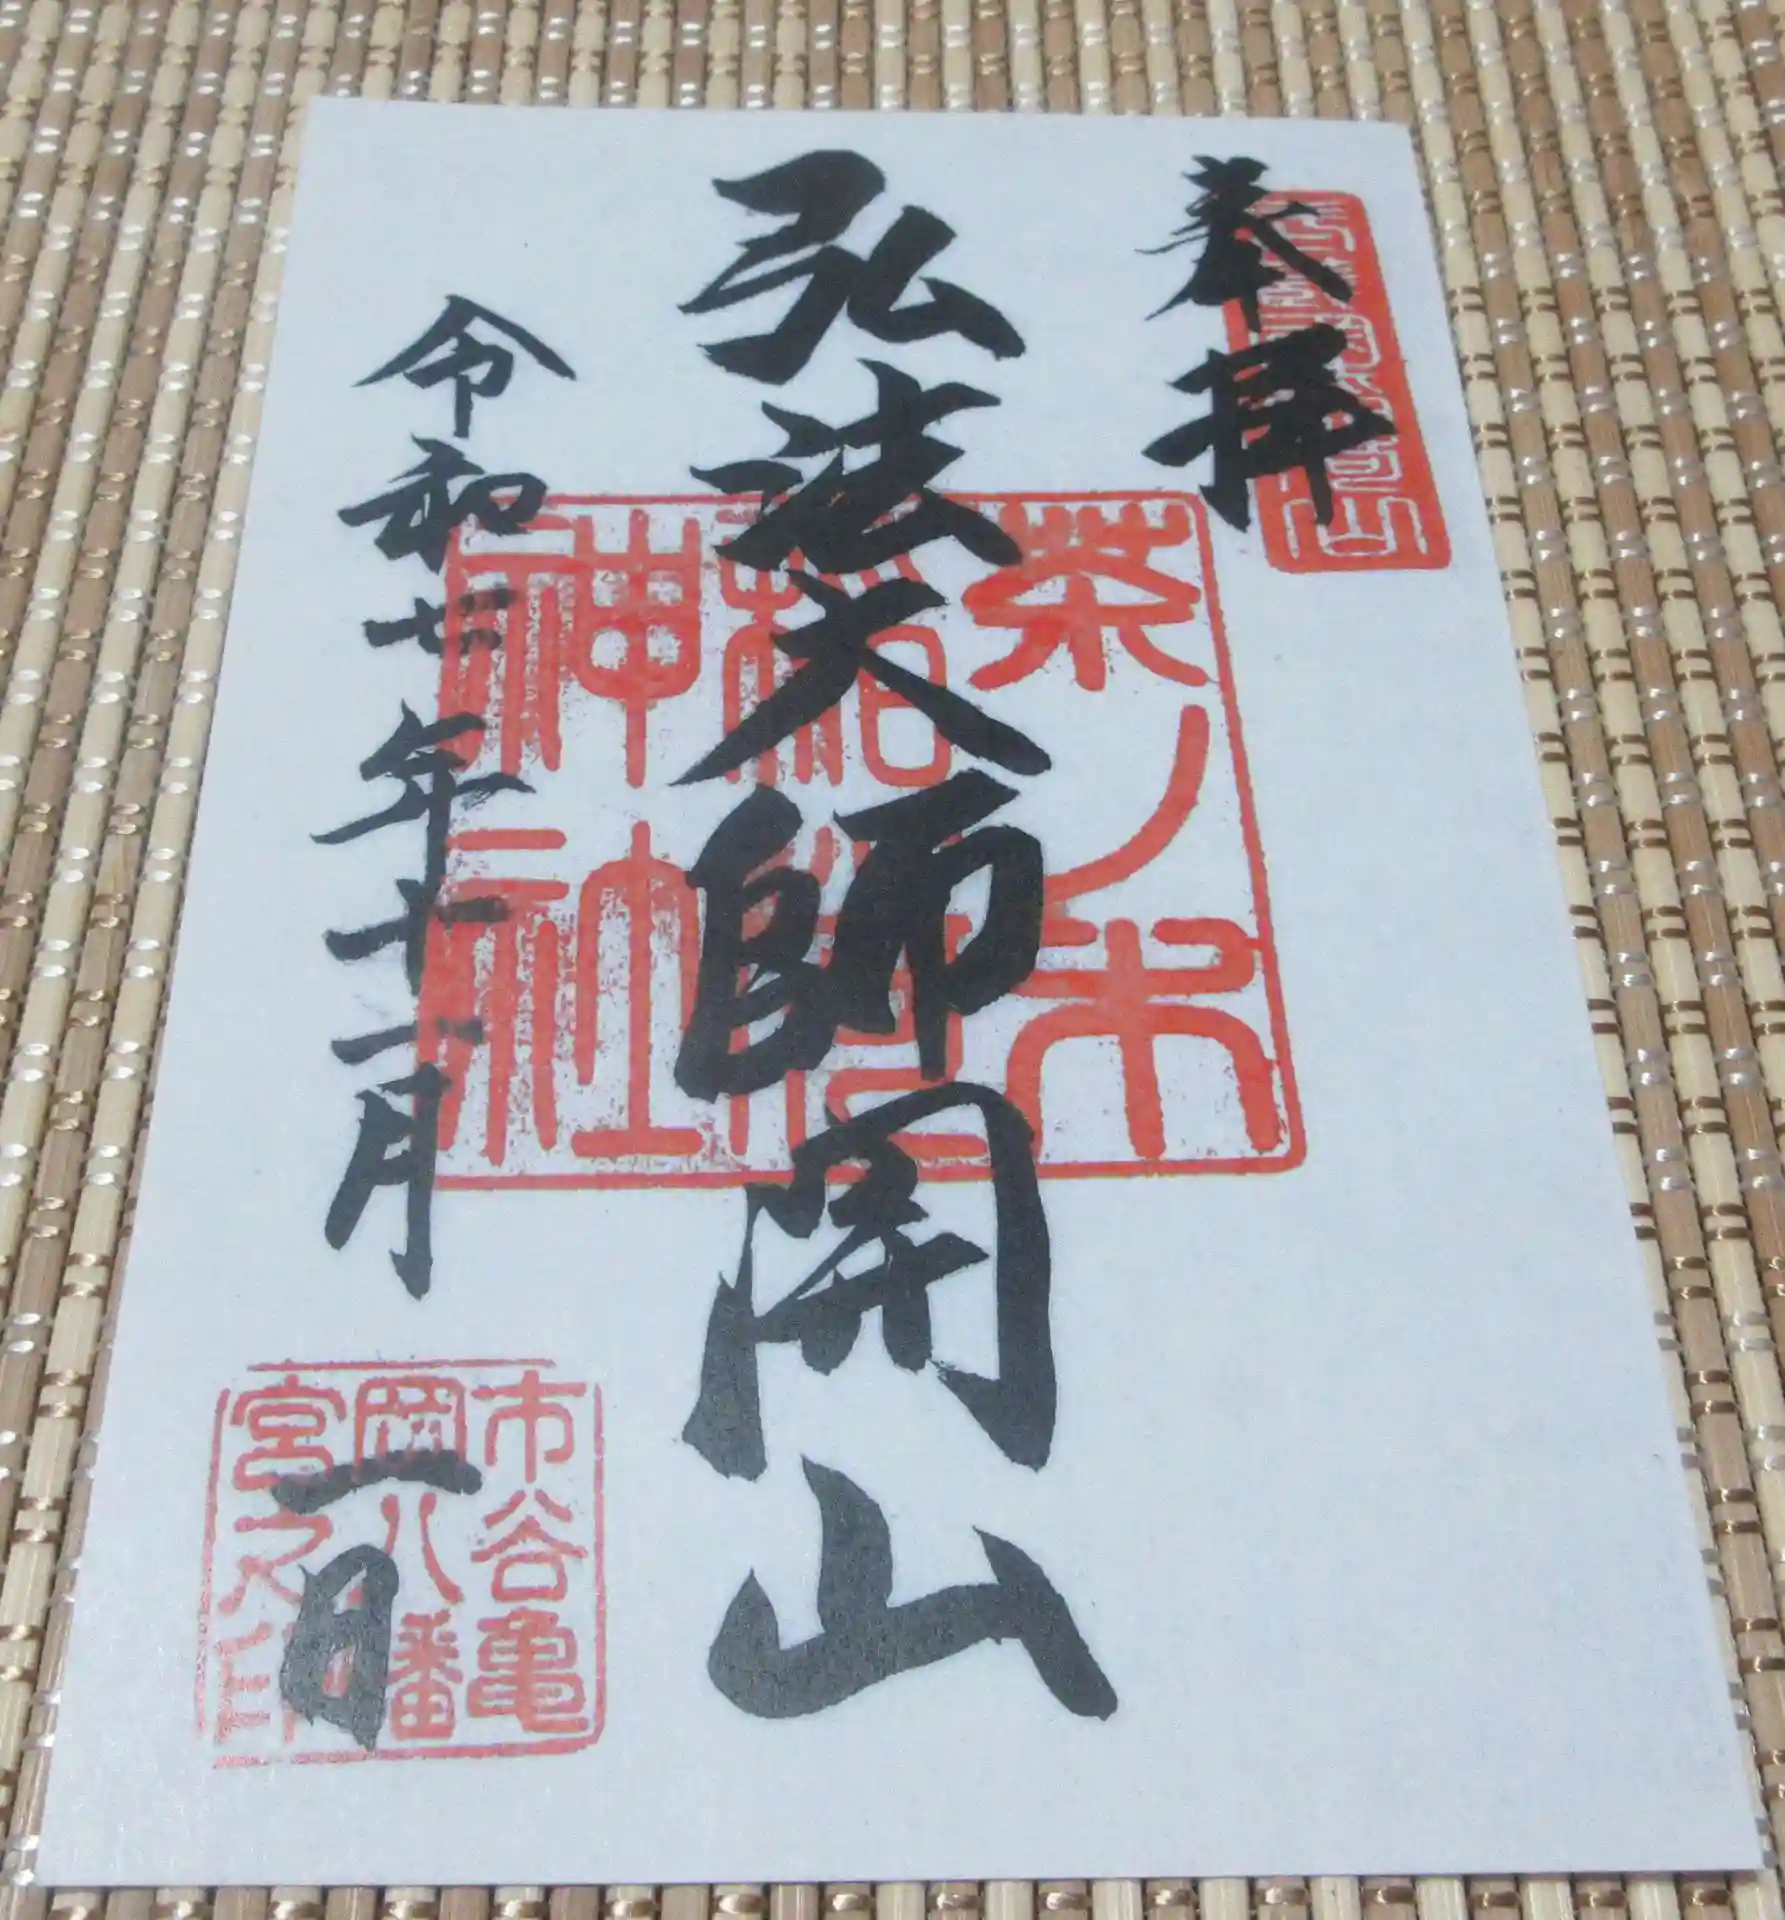 奉拝
弘法大師開山
茶ノ木
稲荷
神社
令和七年十一月
一日
市谷亀
岡八幡
宮之印